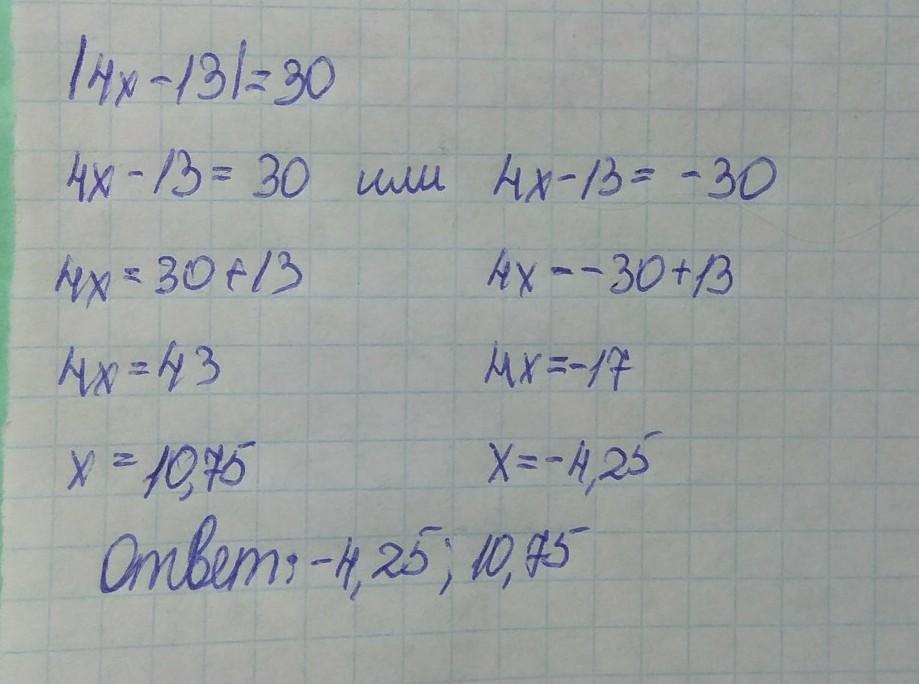 |4x-13|=30
4x-13=30 или 4x-13=-30
4x=30+13 4x=-30+13
4x=43 4x=-17
x=10,75 x=-4,25
Ответ: -4,25; 10,75